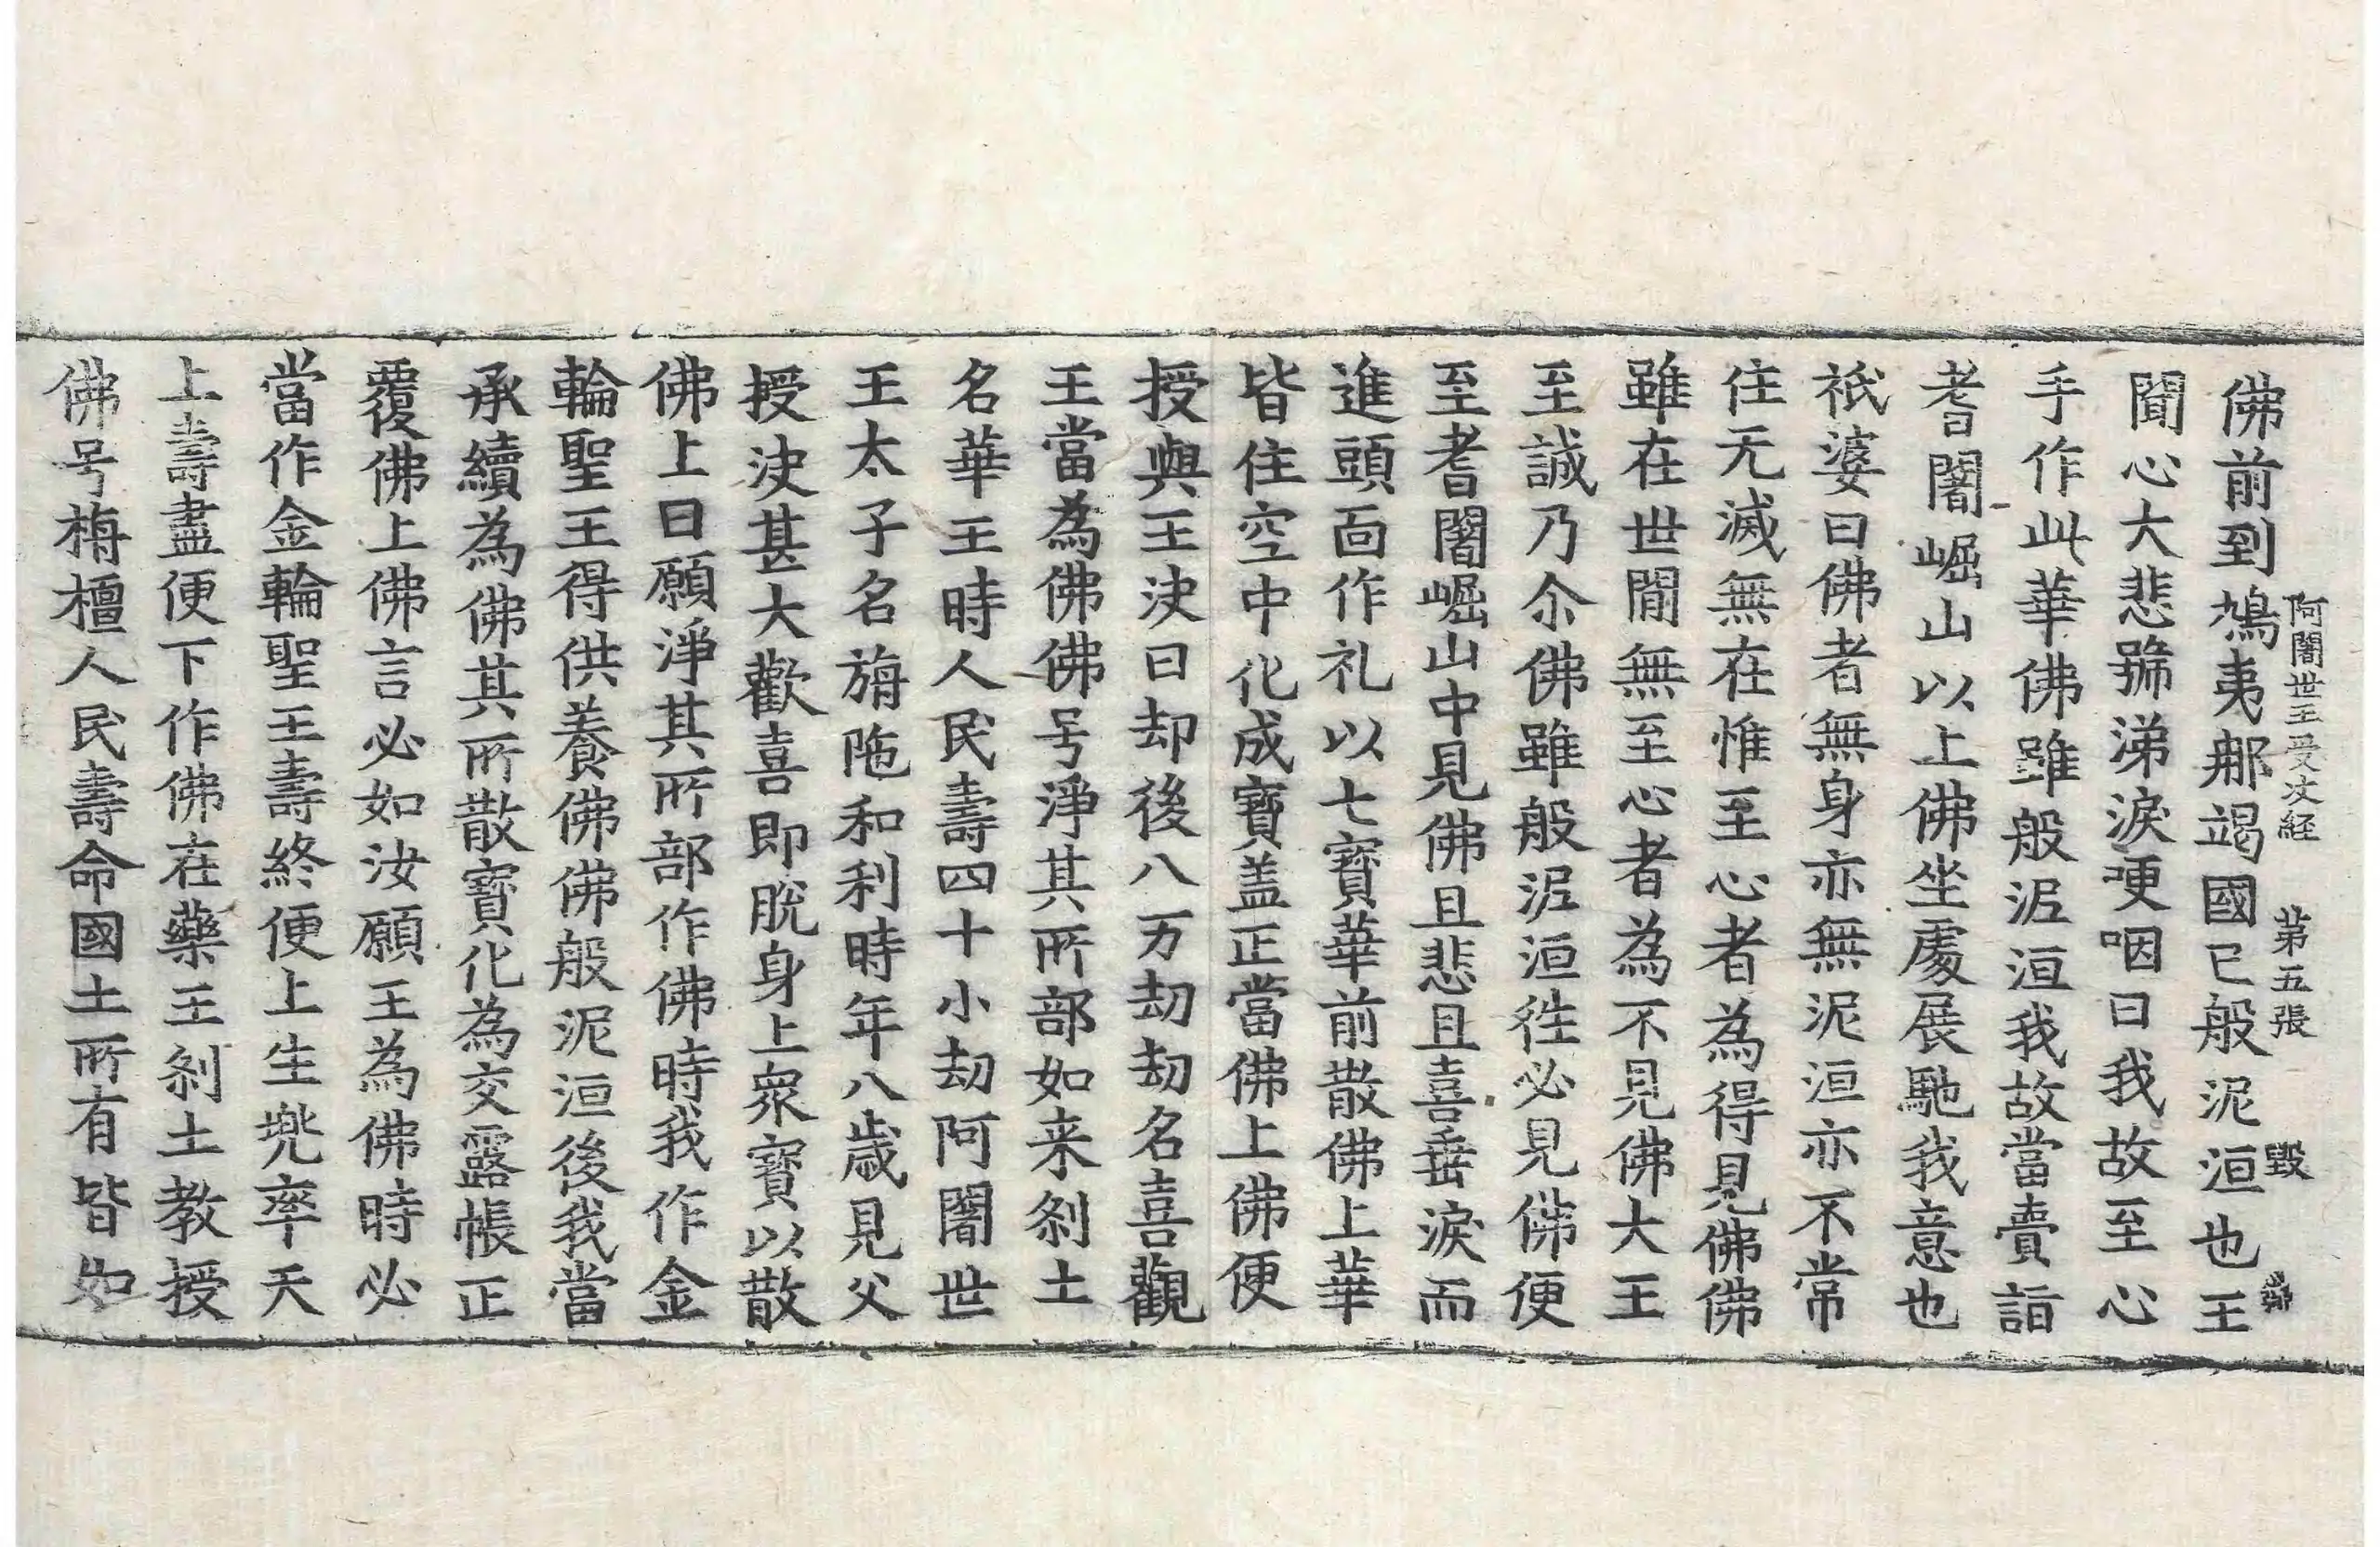 阿闍世王受决経 第五張 毀
佛前到鳩夷那竭國已般泥洹也王
聞心大悲號涕淚哽咽曰我故至心
手作此華佛雖般泥洹我故當賣詣
耆闍崛山以上佛坐處展馳我意也
祇婆曰佛者無身亦無泥洹亦不常
住无滅無在惟至心者為得見佛佛
雖在世間無至心者為不見佛大王
至誠乃尒佛雖般泥洹徃必見佛便
至耆闍崛山中見佛且悲且喜垂淚而
進頭面作礼以七寶華前散佛上華
皆住空中化成寶盖正當佛上佛便
授與王决曰却後八万劫劫名喜觀
王當為佛佛号淨其所部如来刹土
名華王時人民壽四十小劫阿闍世
王太子名旃陁和利時年八歳見父
授决甚大歡喜即脫身上眾寶以散
佛上曰願淨其所部作佛時我作金
輪聖王得供養佛佛般泥洹後我當
承續為佛其所散寶化為交露帳正
覆佛上佛言必如汝願王為佛時必
當作金輪聖王壽終便上生兠率天
上壽盡便下作佛在藥王刹土教授
佛号栴檀人民壽命國土所有皆如